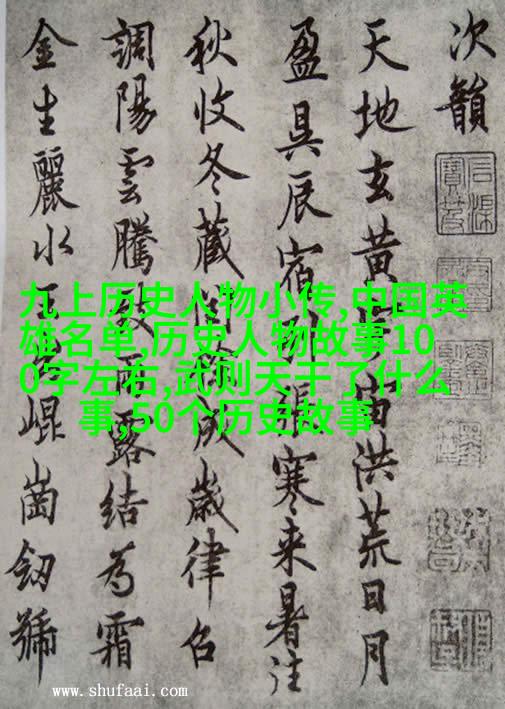 次韻
天地玄黃宙洪荒日月
盈昃辰宿列張寒来暑往
秋收冬藏歲律召
調陽雲騰致雨露結為霜
金生麗水玉崐崗劎號
九上历史人物小传,中国英
雄名单,历史人物故事10
0字左右,武则天干了什么
事,50个历史故事
www.shufaai.com